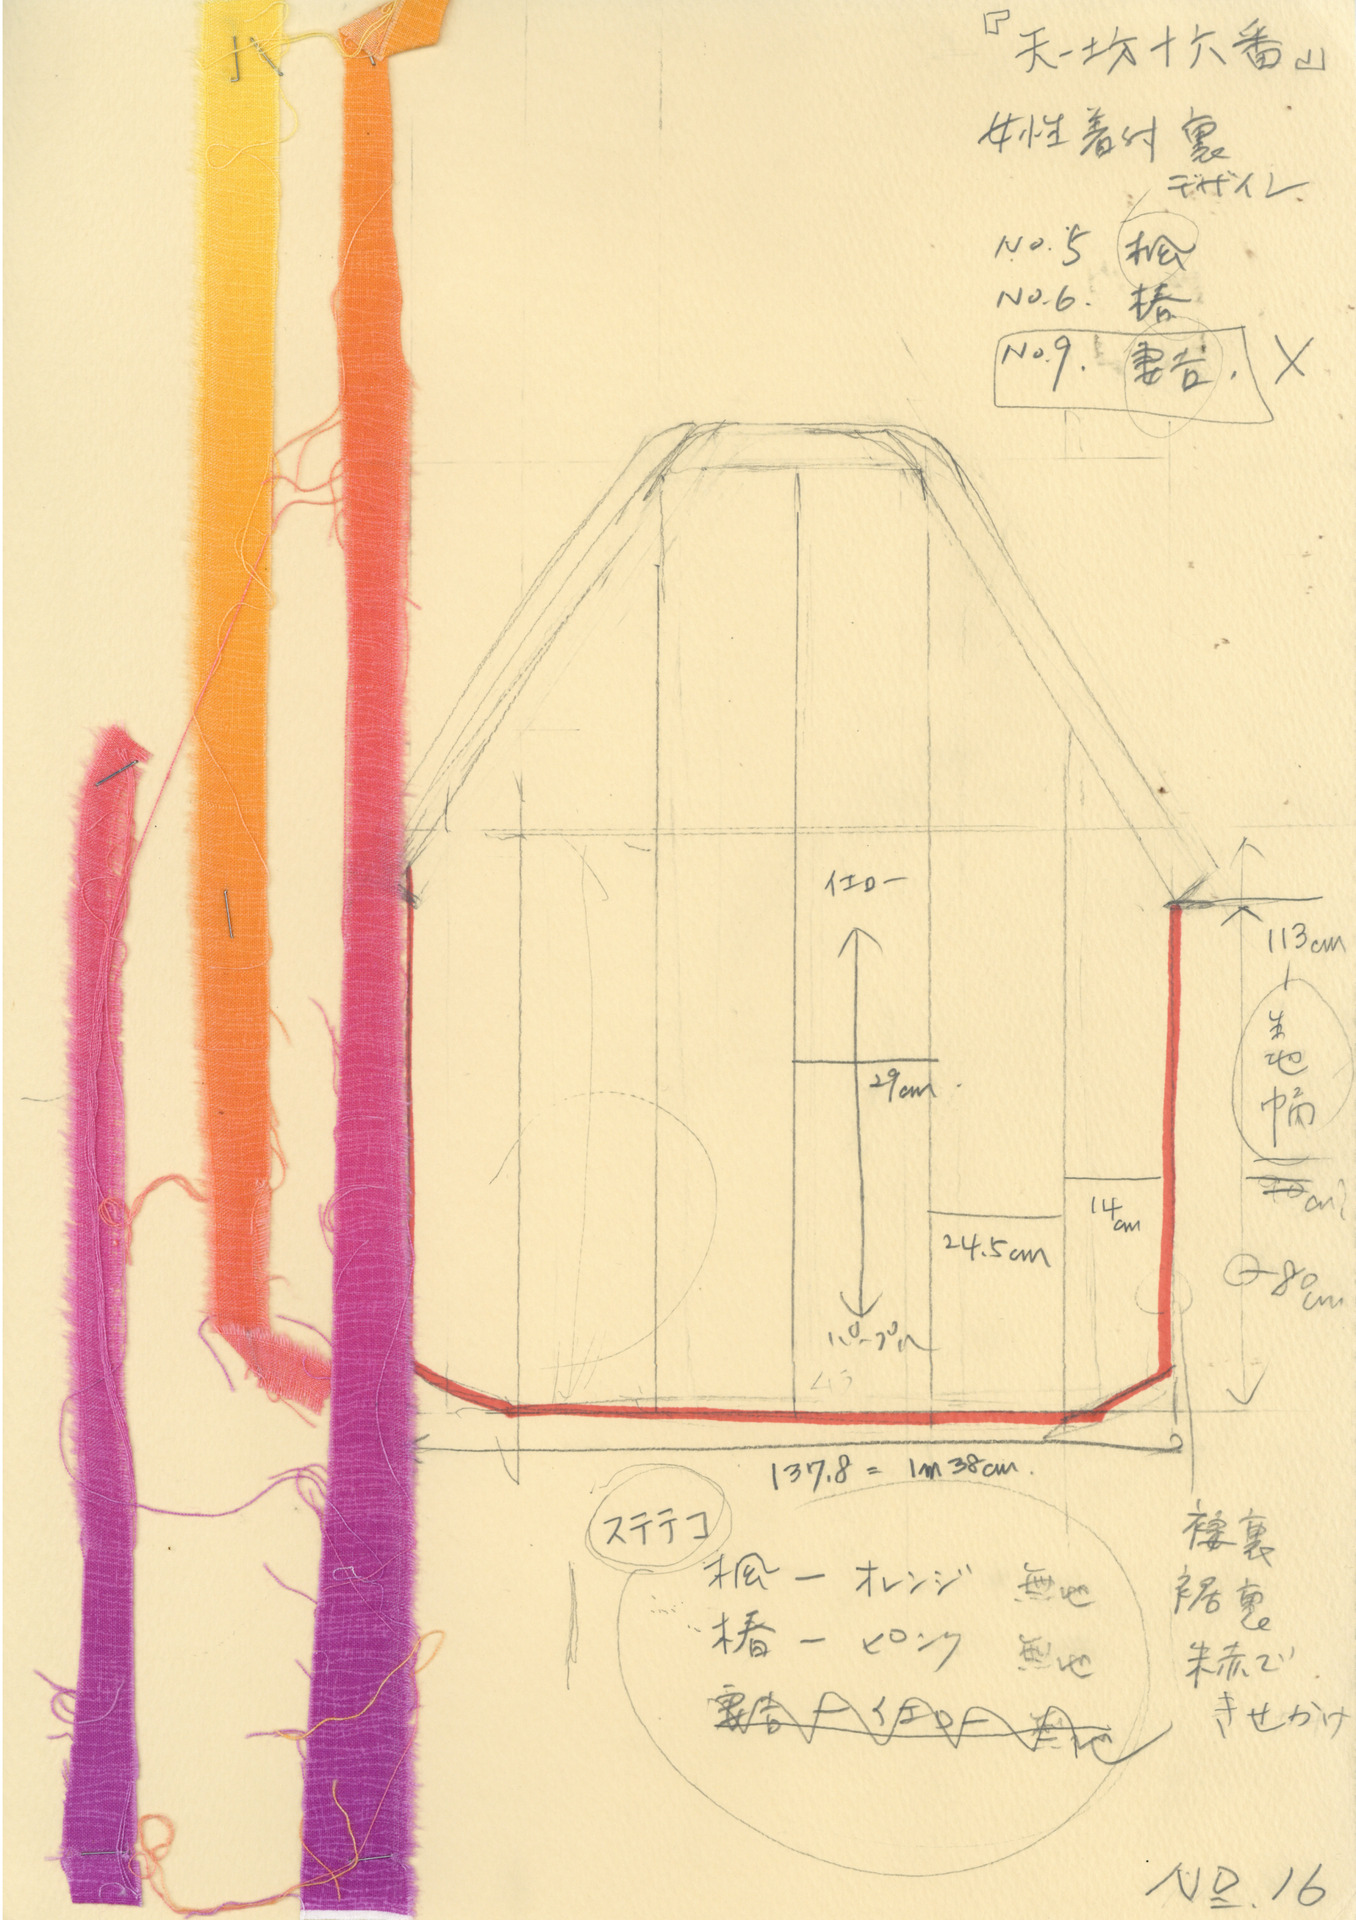 『天一坊十六番』
女性着付裏
デザイン
No.5 楓
No.6. 椿
No.9. 雲谷. X
イエロー
113cm
生地巾
29cm.
14cm
24.5cm
80cm
パープル
137.8 = 1m38cm.
ステテコ
楓ー オレンジ 無地
椿ー ピンク 無地
褄裏
裾裏
朱赤で
きせかけ
No.16